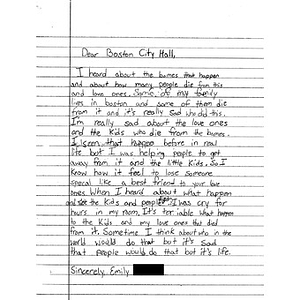 Dear Boston City Hall,
I heard about the bumes that happen
and about how many people die from this
and love ones. Some of my family
lives in boston and some of them die
from it and it's really sad who did this.
I'm really sad about the love ones
and the kids who die from the bumes.
I seen that happen before in real
life but I was helping people to get
away from it and the little kids. So I
know how it feel to lose someone
special like a best friend to your love
ones. When I heard about what happen
and see the kids and people I was cry for
hours in my room. It's teriable what happen
to the kids and my love ones that died
from it. Sometime I think about who in the
world would do that but it's sad
that people would do that but it's life.
Sincerely, Emily